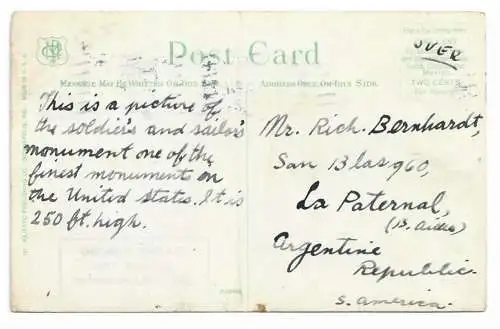 Post Card
OVER
MESSAGE MAY BE WRITTEN ON THIS SIDE
ADDRESS ONLY ON THIS SIDE.
TWO CENTS
This is a picture of
the soldier's and sailor's
monument one of the
finest monuments on
the United States. It is
250 ft. high.
Mr. Rich. Bernhardt,
San Blas 960,
La Paternal,
(B. Aires)
Argentine
Republic.
S. America.